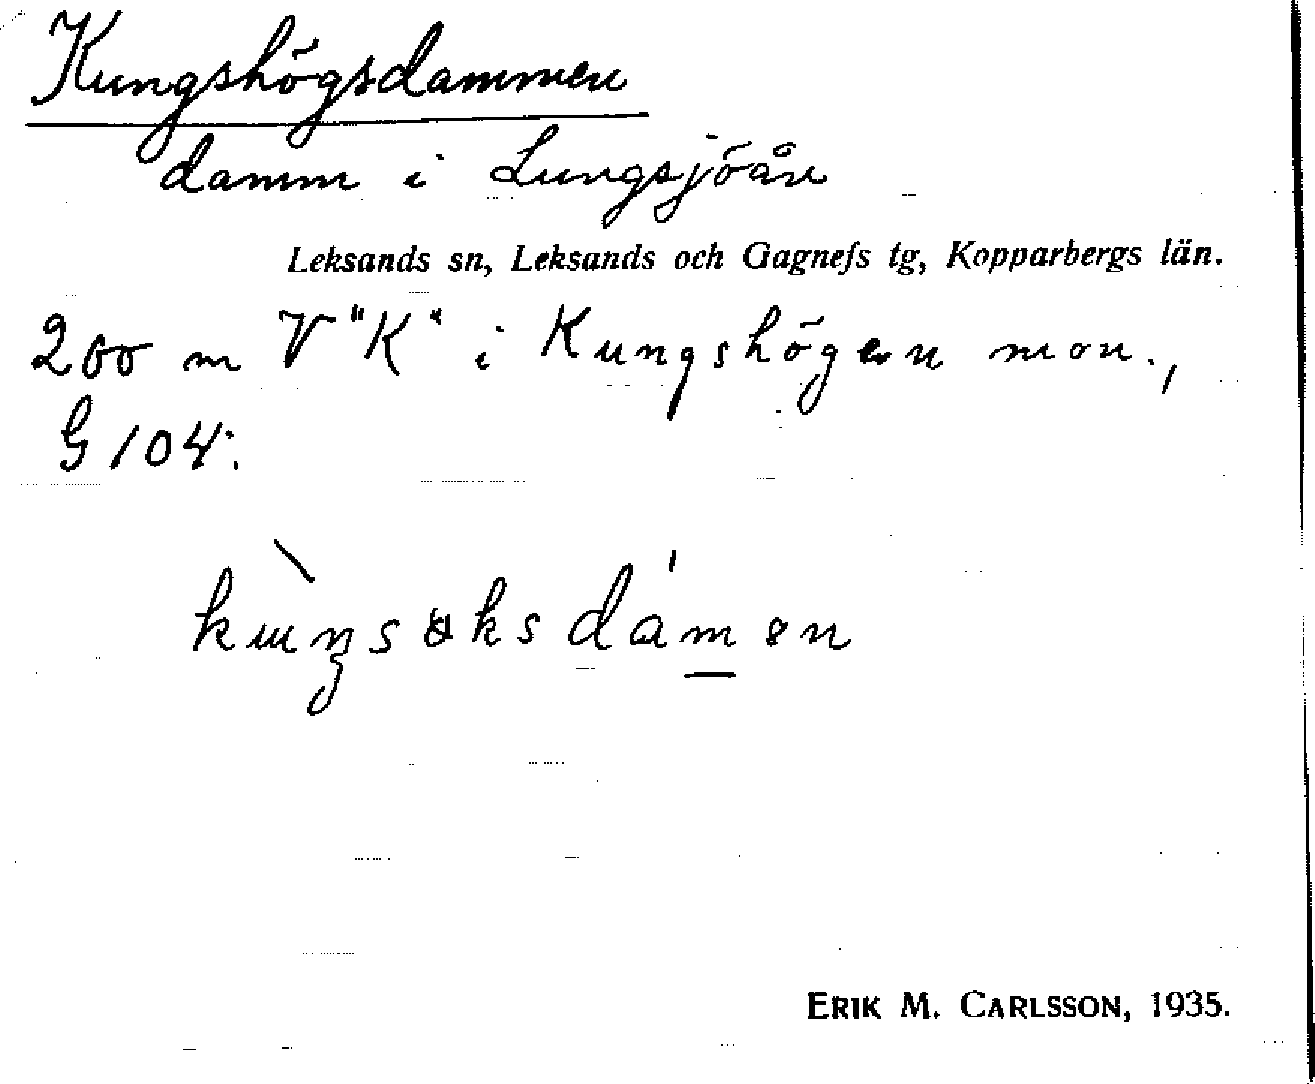 Kungshögsdammen
damm i Lungsjöån
Leksands sn, Leksands och Gagnefs tg, Kopparbergs län.
200 m V "K" i Kungshögen mon.,
G 104.
ERIK M. CARLSSON, 1935.